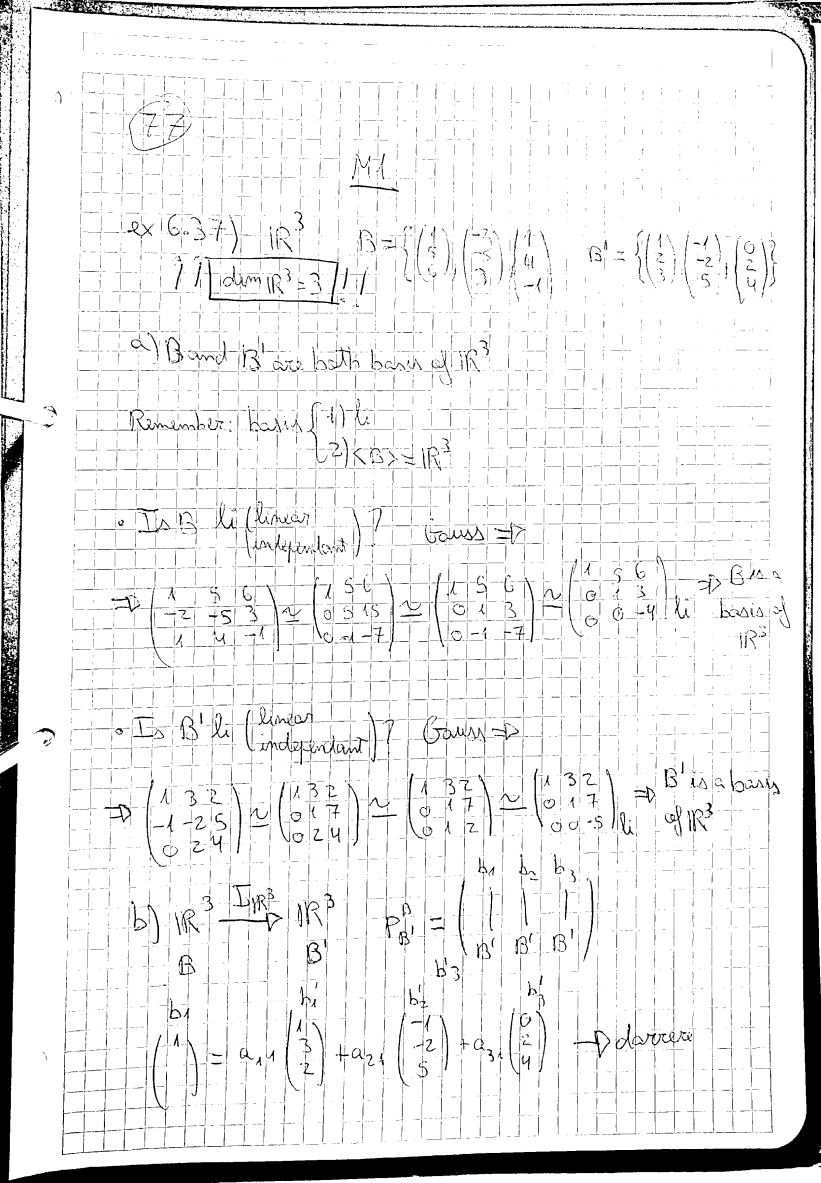 77
M1
ex 6.37) ℝ³ B = {(1 5 6), (-2 -5 3), (1 4 -1) B' = {(1 2 3), (-1 -2 5), (0 2 4)}
!! dim ℝ³ = 3 !!
a) B and B' are both basis of ℝ³
Remember: basis { 1) li
2) <B> = ℝ³
• Is B li (linear independant)? Gauss ⇒
⇒ (1 5 6 / -2 -5 3 / 1 4 -1) ≃ (1 5 6 / 0 5 15 / 0 -1 -7) ≃ (1 5 6 / 0 1 3 / 0 -1 -7) ≃ (1 5 6 / 0 1 3 / 0 0 -4) li ⇒ B is a basis of ℝ³
• Is B' li (linear independant)? Gauss ⇒
⇒ (1 3 2 / -1 -2 5 / 0 2 4) ≃ (1 3 2 / 0 1 7 / 0 2 4) ≃ (1 3 2 / 0 1 7 / 0 1 2) ≃ (1 3 2 / 0 1 7 / 0 0 -5) li ⇒ B' is a basis of ℝ³
b₁ b₂ b₃
b) ℝ³ I_ℝ³ → ℝ³ P^B_B' = ( | | | )
B B' B' B' B'
b'3
b₁ b₁' b₂' b₃'
(1 ) = a₁1 (1 3 2) + a₂₁ (-1 -2 5) + a₃₁ (0 2 4) → darrere